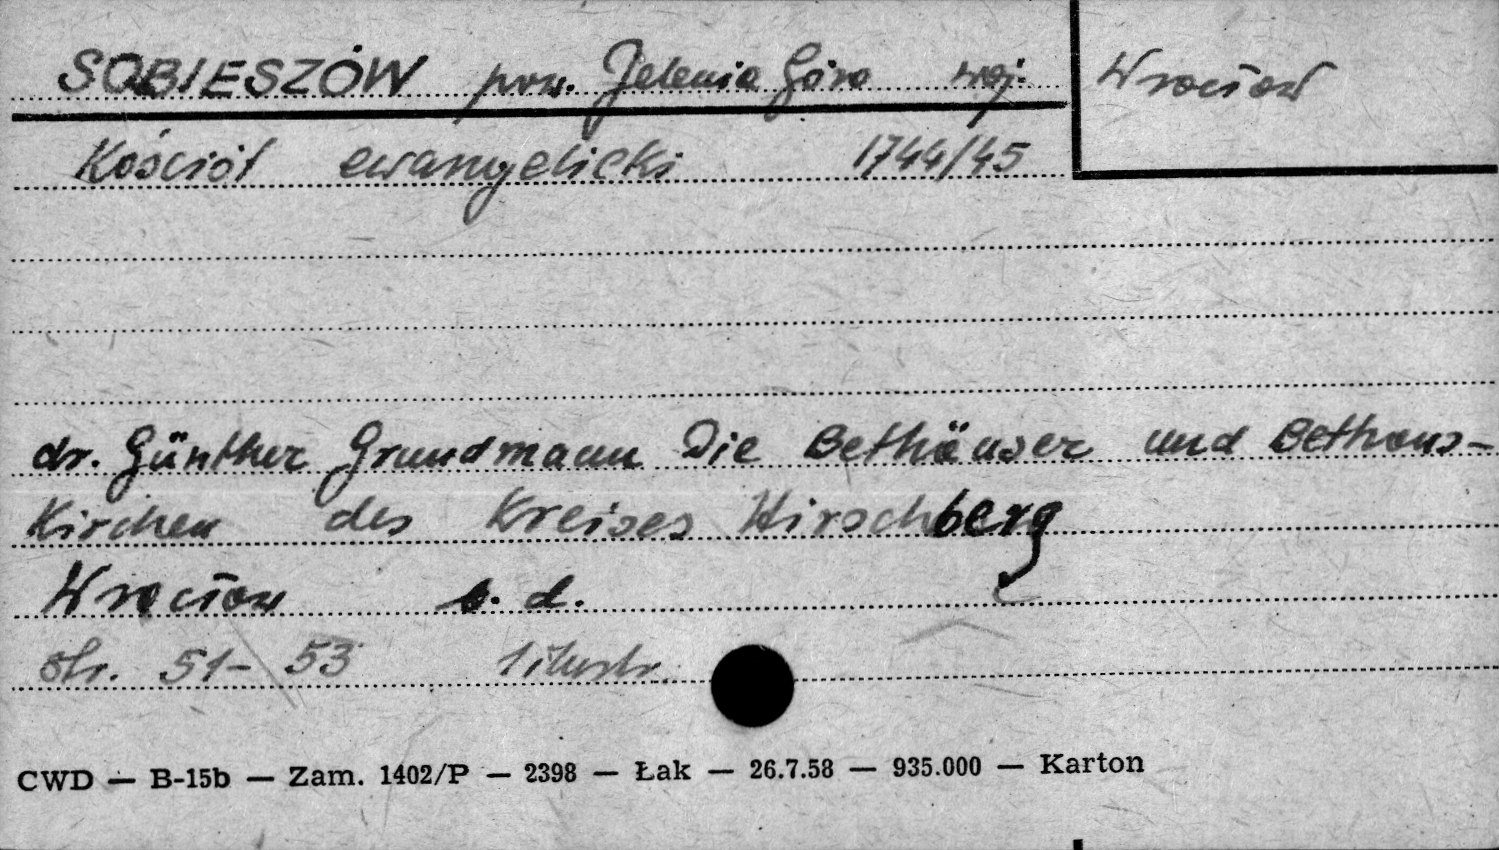 SOBIESZÓW pow. Jelenia Góra woj. Wrocław
Kościół ewangelicki 1744/45
dr. Günther Grundmann Die Bethäuser und Bethaus-
Kirchen des Kreises Hirschberg
Wrocław b. d.
str. 51-53 1 ilustr.
CWD — B-15b — Zam. 1402/P — 2398 — Łak — 26.7.58 — 935.000 — Karton